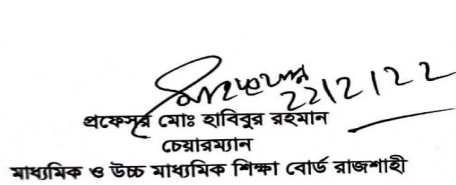 22/2/22
প্রফেসর মোঃ হাবিবুর রহমান
চেয়ারম্যান
মাধ্যমিক ও উচ্চ মাধ্যমিক শিক্ষা বোর্ড রাজশাহী